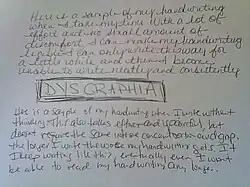 Here is a sample of my handwriting
when I take my time With a lot of
effort and no small amount of
discomfort I can make my handwriting
legible. I can only write this way for
a little while and then I become
unable to write neatly and consistently
DYSGRAPHIA
Here is a sample of my handwriting when I write without
thinking. This also takes effort and is painful, but
doesn't require the same intense concentration and
the longer I write the worse my handwriting gets. If I
keep writing like this, eventually even I won't
be able to read my handwriting any longer..